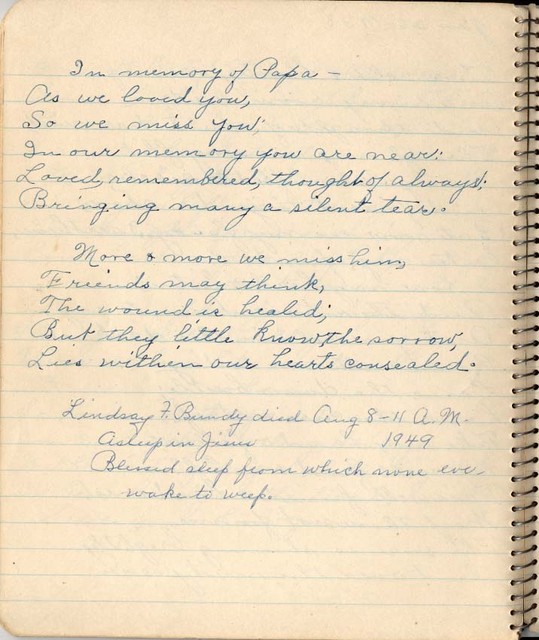 In memory of Papa –
As we loved you,
So we miss you;
In our memory you are near:
Loved, remembered, thought of always;
Bringing many a silent tear.
More & more we miss him,
Friends may think,
The wound is healed;
But they little know the sorrow,
Lies within our hearts consealed.
Lindsay F. Bundy died Aug 8-11 A.M.
Asleep in Jesus 1949
Blessed sleep from which none eve
wake to weep.